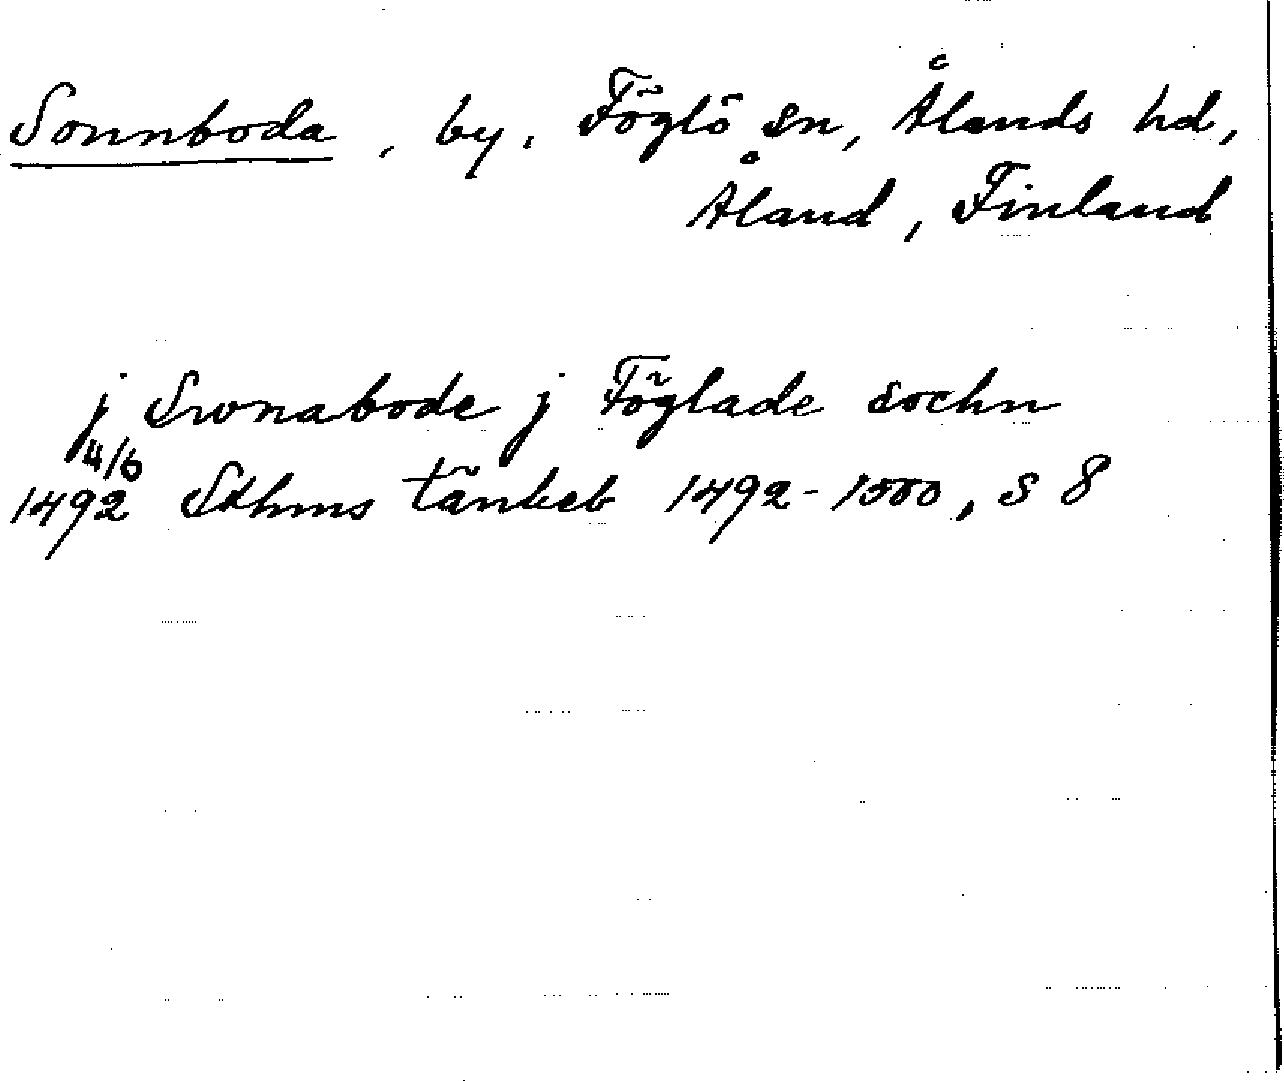 Sonnboda, by, Föglö sn, Ålands hd,
Åland, Finland
j Swnabode j Föglade sochn
4/6
1492 Sthms tänkeb 1492-1500, s 8